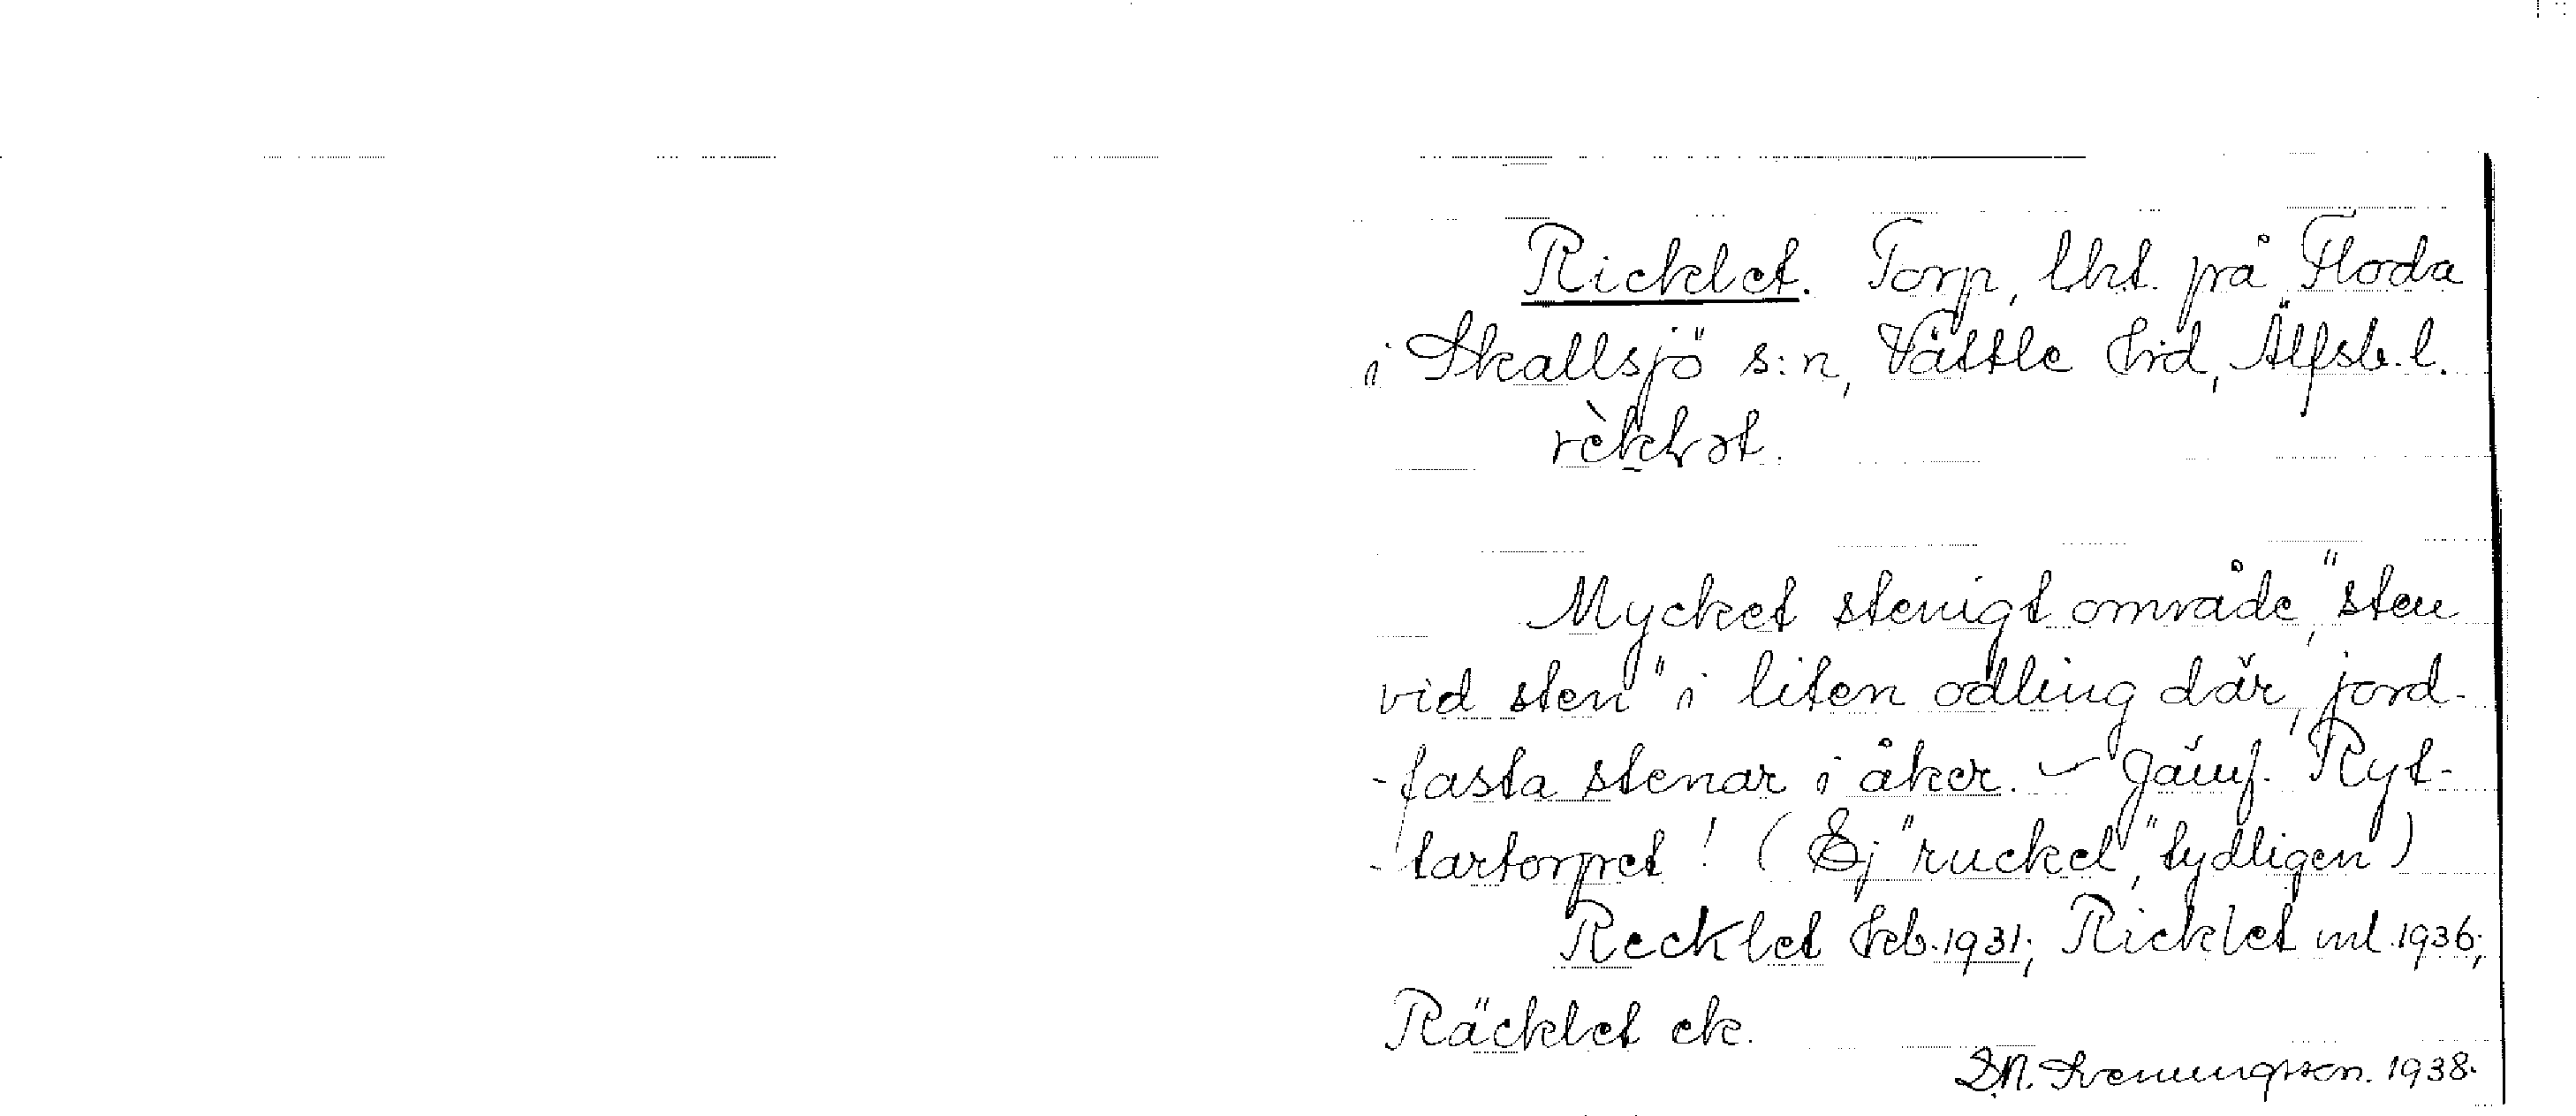 Ricklet. Torp, lht. på Floda
i Skallsjö s:n, Vättle hrd, Älfsb. l.
Mycket stenigt område, "sten
vid sten" i liten odling där, jord-
-fasta stenar i åker. – Jämf. Ryt-
-tartorpet! (Ej "ruckel", tydligen)
Recklet hcb. 1931; Ricklet ml. 1936;
Räcklet ek.
D.N. Svenungsson. 1938.